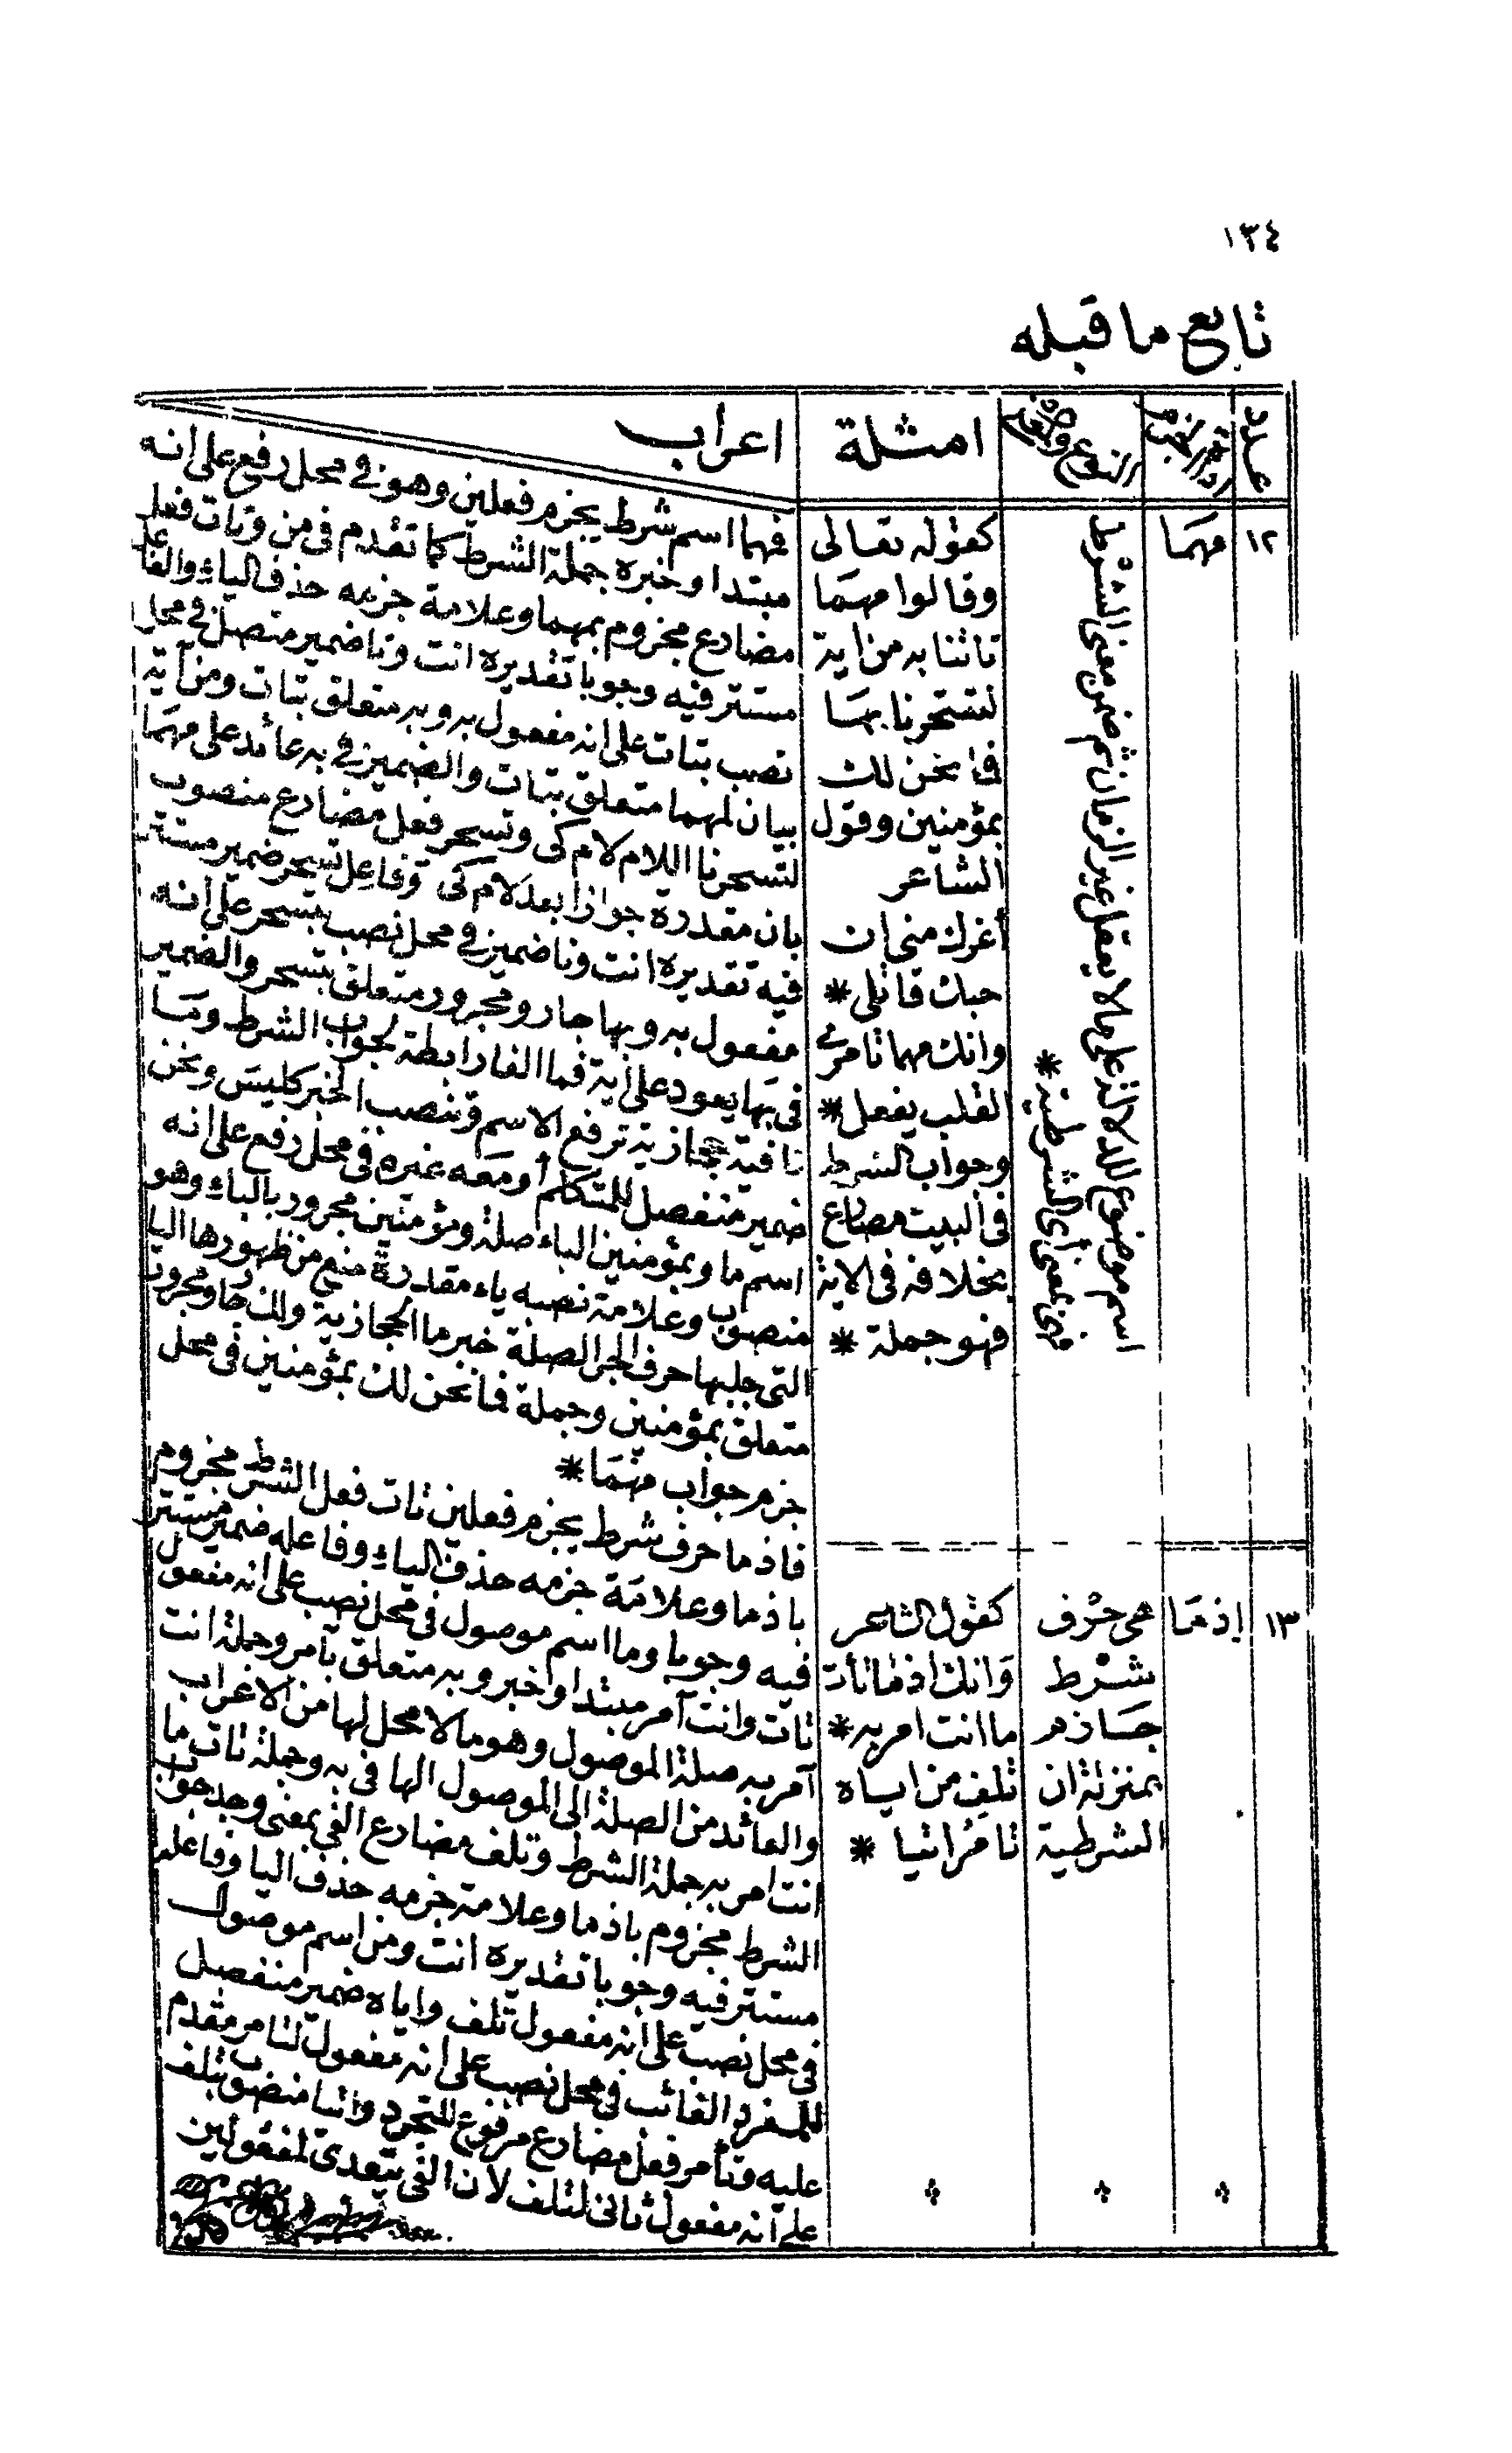 ١٣٤
تابع ما قبله
عدد
النوع
امثلة
اعراب
١٢
مهما
اسم موضوع للدلالة على ما لا يعقل غير الزمان ثم ضمن معنى الشرط
أى الشرطية *
كقوله تعالى
وقالوا مهما
تاتنا به من اية
لتسحرنا بها
فما نحن لك
بمؤمنين وقول
الشاعر
أغرك منى ان
حبك قاتلى *
وانك مهما تامرى
القلب يفعل *
وجواب الشرط
فى البيت مضارع
بخلافه فى الاية
فهو جملة *
فمهما اسم شرط يجزم فعلين وهو فى محل رفع على انه
مبتدا وخبره جملة الشرط كما تقدم فى من وتات فعل
مضارع مجزوم بمهما وعلامة جزمه حذف الياء والفاعل
مستتر فيه وجوبا تقديره انت ونا ضمير متصل فى محل
نصب بتات على انه مفعول به وبه متعلق بتات ومن آية
بيان لمهما متعلق بتات والضمير فى به عائد على مهما
لتسحرنا اللام لام كى وتسحر فعل مضارع منصوب
بان مقدرة جوازا بعد لام كى وفاعل تسحر ضمير مستتر
فيه تقديره انت ونا ضمير فى محل نصب بتسحر على انه
مفعول به وبها جار ومجرور متعلق بتسحر والضمير
فى بها يعود على آية فما الفا رابطة لجواب الشرط وما
نافية حجازية ترفع الاسم وتنصب الخبر كليس ونحن
ضمير منفصل للمتكلم أو معه غيره فى محل رفع على انه
اسم ما وبمؤمنين الباء صلة ومؤمنين مجرور بالباء وهو
منصوب وعلامة نصبه ياء مقدرة منع من ظهورها اليا
التى جلبها حرف الجر الصلة خبر ما الحجازية ولك جار ومجرور
متعلق بمؤمنين وجملة فما نحن لك بمؤمنين فى محل
جزم جواب مهما *
١٣
إذما
هى حرف
شرط
جازم
بمنزلة ان
الشرطية
كقول الشاعر
وانك اذما تأت
ما انت امر به *
تلف من اياه
تامر اتيا *
فاذما حرف شرط يجزم فعلين تات فعل الشرط مجزوم
باذما وعلامة جزمه حذف الياء وفاعله ضمير مستتر
فيه وجوبا وما اسم موصول فى محل نصب على انه مفعول
تات وانت آمر مبتدا وخبر وبه متعلق بآمر وجملة انت
آمر به صلة الموصول وهو ما لا محل لها من الاعراب
والعائد من الصلة الى الموصول الها فى به وجملة تات ما
انت امر به جملة الشرط وتلف مضارع الفى بمعنى وجد جواب
الشرط مجزوم باذما وعلامة جزمه حذف اليا وفاعله
مستتر فيه وجوبا تقديره انت ومن اسم موصول
فى محل نصب على انه مفعول تلف واياه ضمير منفصل
للمفرد الغائب فى محل نصب على انه مفعول لتامر مقدم
عليه وتأمر فعل مضارع مرفوع للتجرد واتيا منصوب بتلف
على انه مفعول ثانى لتلف لان الفى يتعدى لمفعولين